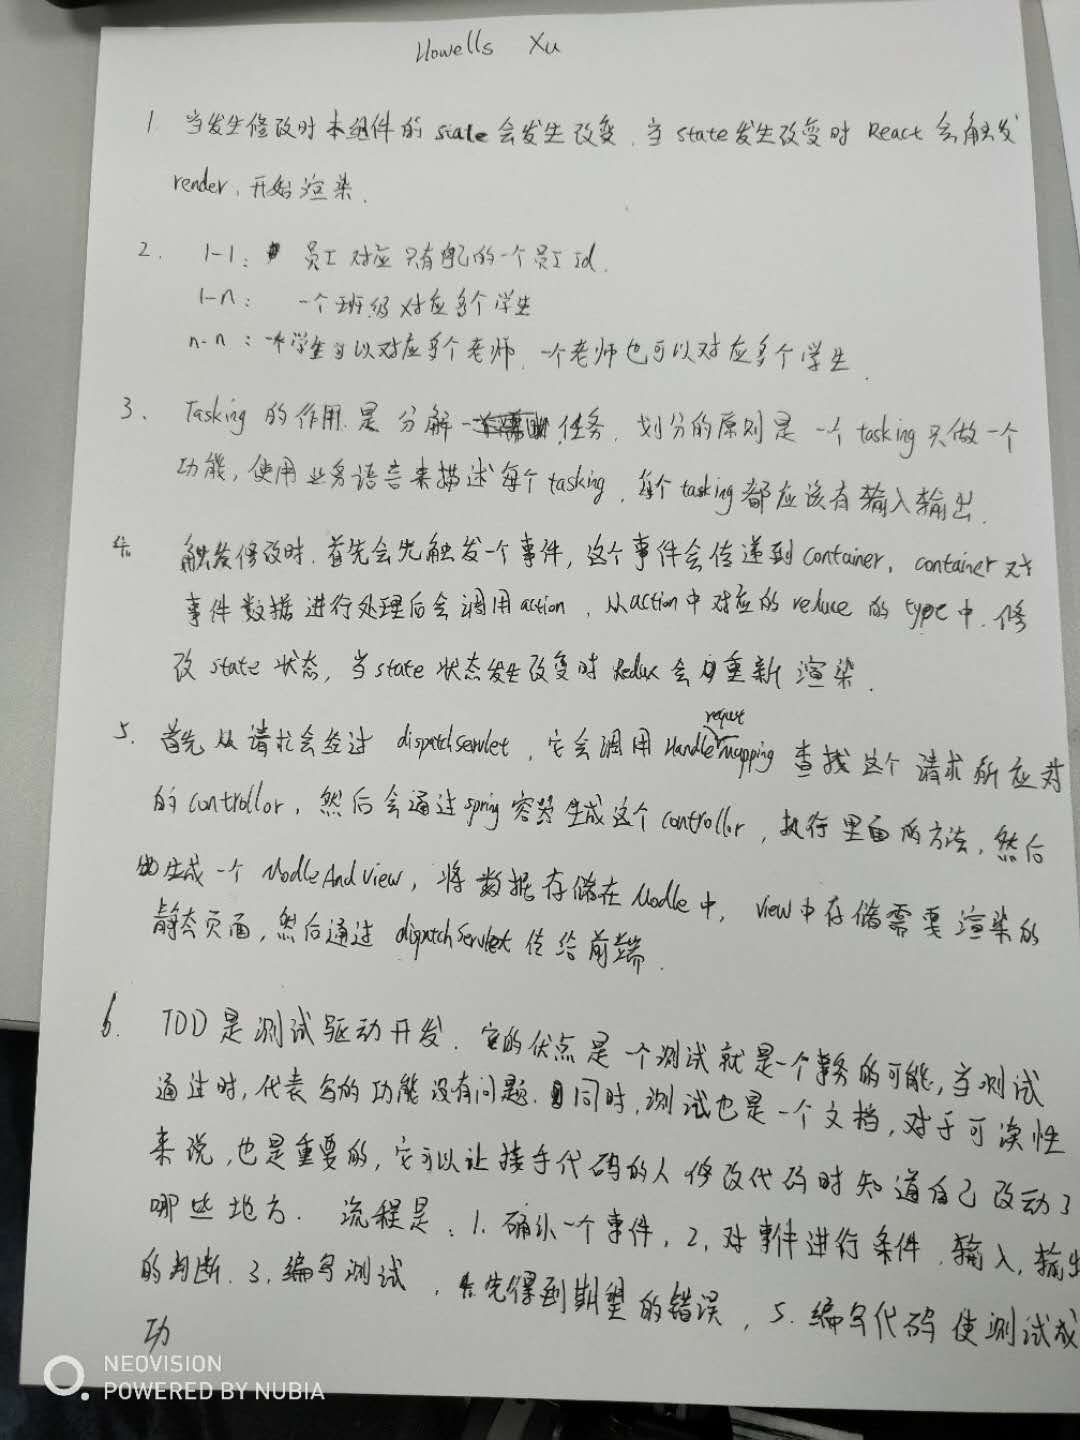 Howells Xu
1. 当发生修改时本组件的 state 会发生改变. 当 state 发生改变时 React 会触发
render, 开始渲染.
2. 1-1: 员工对应只有自己的一个员工Id.
1-n: 一个班级对应多个学生
n-n: 一个学生可以对应多个老师, 一个老师也可以对应多个学生.
3. Tasking 的作用是分解任务. 划分的原则是一个 tasking 只做一个
功能, 使用业务语言来描述每个 tasking, 每个 tasking 都应该有输入输出.
4. 触发修改时. 首先会先触发一个事件, 这个事件会传递到 container, container 对
事件数据进行处理后会调用 action, 从 action 中对应的 reduce 的 type 中. 修
改 state 状态, 当 state 状态发生改变时 Redux 会重新渲染.
5. 首先从请求会经过 dispatchServlet, 它会调用 Handle request mapping 查找这个请求所应对
的 controllor, 然后会通过 spring 容器生成这个 controllor, 执行里面的方法, 然后
生成一个 ModleAndView, 将数据存储在 Modle 中, view 中存储需要渲染的
静态页面, 然后通过 dispatchServlet 传给前端.
6. TDD 是测试驱动开发. 它的优点是一个测试就是一个事务的可能, 当测试
通过时, 代表写的功能没有问题. 同时, 测试也是一个文档, 对于可读性
来说, 也是重要的, 它可以让接手代码的人修改代码时知道自己改动了
哪些地方. 流程是: 1. 确认一个事件, 2. 对事件进行条件. 输入, 输出
的判断. 3. 编写测试, 4. 先得到期望的错误, 5. 编写代码使测试成
功
NEOVISION
POWERED BY NUBIA